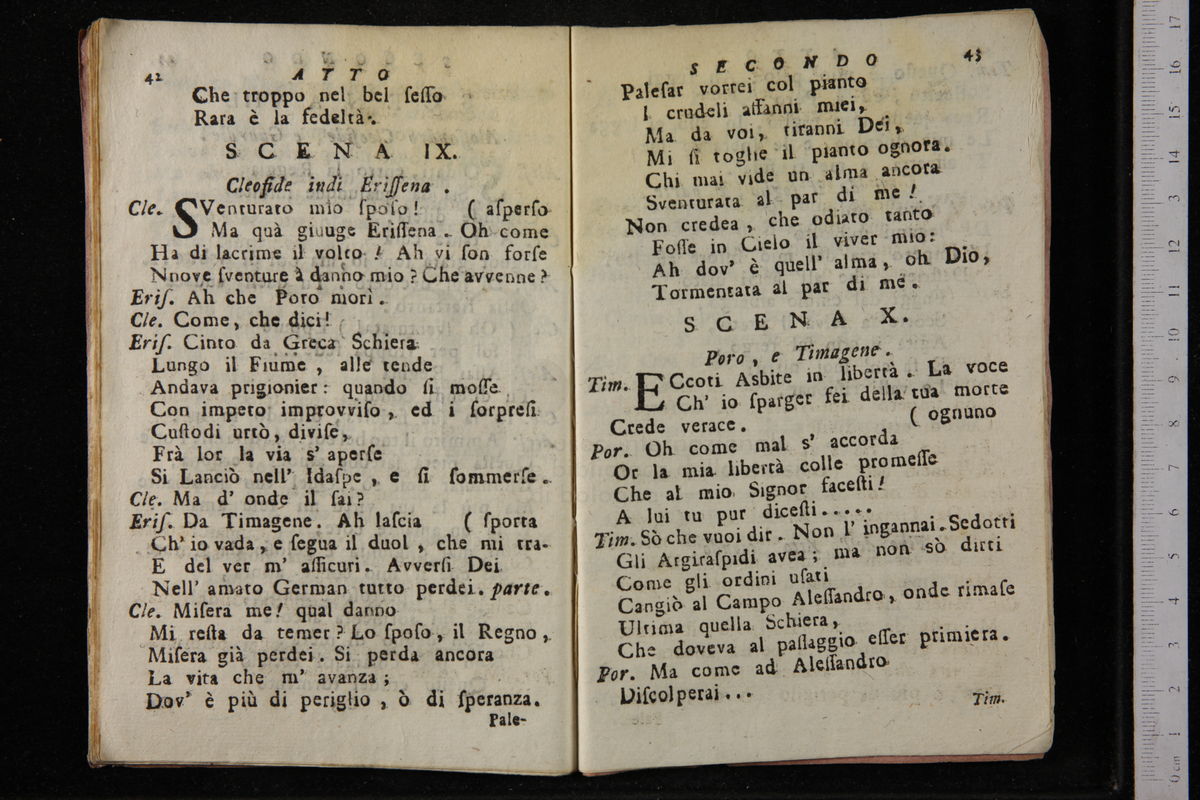 42
ATTO
Che troppo nel bel ſeſſo
Rara è la fedeltà.
SCENA IX.
Cleofide indi Eriſſena.
Cle. SVenturato mio ſpoſo! ( aſperſo
Ma quà giuuge Eriſſena. Oh come
Ha di lacrime il volto! Ah vi ſon forſe
Nnove ſventure à danno mio? Che avvenne?
Eriſ. Ah che Poro morì.
Cle. Come, che dici!
Eriſ. Cinto da Greca Schiera
Lungo il Fiume, alle tende
Andava prigionier: quando ſi moſſe
Con impeto improvviſo, ed i ſorpreſi
Cuſtodi urtò, diviſe,
Frà lor la via s' aperſe
Si Lanciò nell' Idaſpe, e ſi ſommerſe.
Cle. Ma d' onde il ſai?
Eriſ. Da Timagene. Ah laſcia ( ſporta
Ch' io vada, e ſegua il duol, che mi tra-
E del ver m' aſſicuri. Avverſi Dei
Nell' amato German tutto perdei. parte.
Cle. Miſera me! qual danno
Mi reſta da temer? Lo ſpoſo, il Regno,
Miſera già perdei. Si perda ancora
La vita che m' avanza;
Dov' è più di periglio, ò di ſperanza.
Pale-
SECONDO
43
Paleſar vorrei col pianto
I crudeli affanni miei,
Ma da voi, tiranni Dei,
Mi ſi toglie il pianto ognora.
Chi mai vide un alma ancora
Sventurata al par di me!
Non credea, che odiato tanto
Foſſe in Cielo il viver mio:
Ah dov' è quell' alma, oh Dio,
Tormentata al par di me.
SCENA X.
Poro, e Timagene.
Tim. ECcoti Asbite in libertà. La voce
Ch' io ſparger fei della tua morte
Crede verace. ( ognuno
Por. Oh come mal s' accorda
Or la mia libertà colle promeſſe
Che al mio Signor faceſti!
A lui tu pur diceſti.....
Tim. Sò che vuoi dir. Non l' ingannai. Sedotti
Gli Argiraſpidi avea; ma non sò dirti
Come gli ordini uſati
Cangiò al Campo Aleſſandro, onde rimaſe
Ultima quella Schiera,
Che doveva al paſſaggio eſſer primiera.
Por. Ma come ad Aleſſandro
Diſcolperai...
Tim.
0 cm 1 2 3 4 5 6 7 8 9 10 11 12 13 14 15 16 17